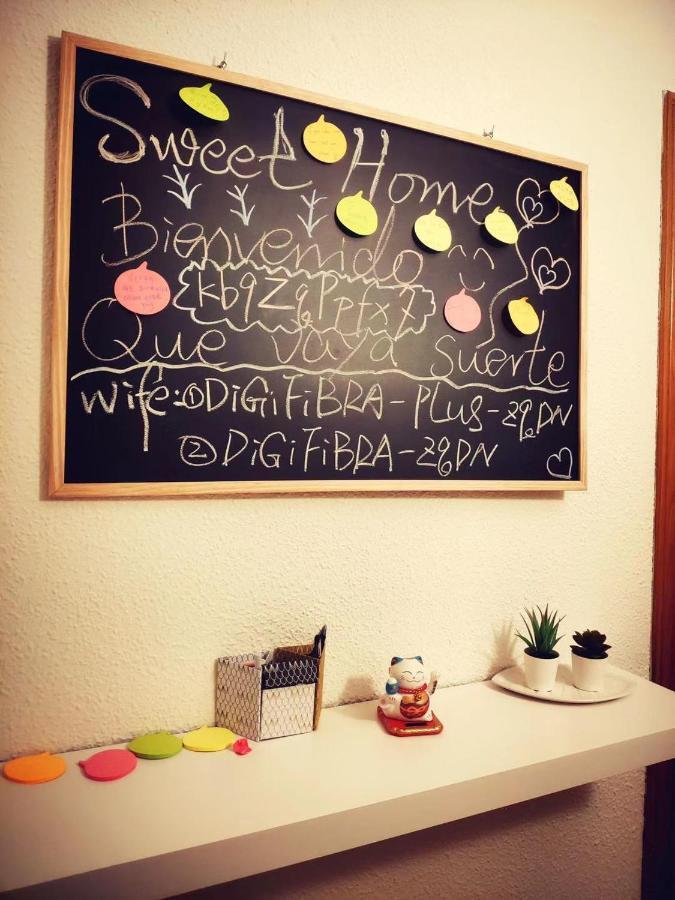 Sweet Home
Bienvenido
kb9ZgPptxX
Que vaya suerte
wife:①DiGiFiBRA-PLus-ZqDN
②DiGiFiBRA-ZqDN